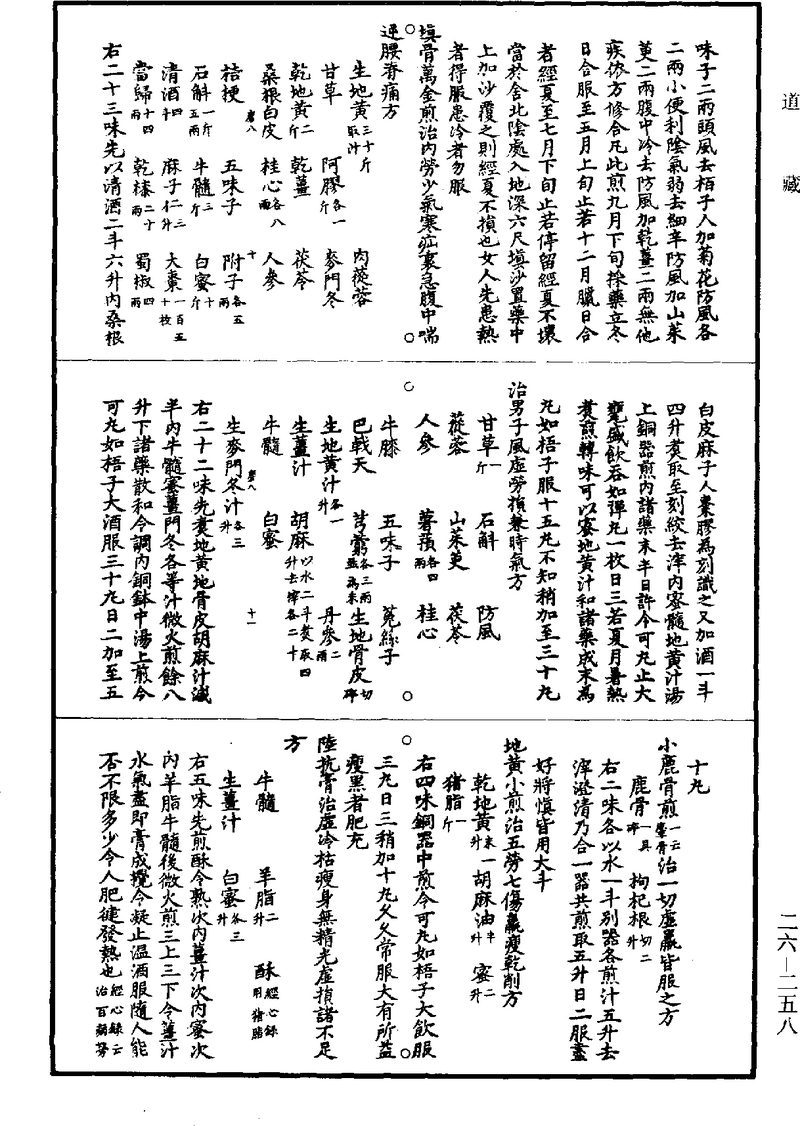 道藏
味子二兩頭風去栢子人加菊花防風各
二兩小便利陰氣弱去細辛防風加山茱
萸二兩腹中冷去防風加乾薑二兩無他
疾依方修合凡此煎九月下旬採藥立冬
日合服至五月上旬止若十二月臘日合
者經夏至七月下旬止若停留經夏不壞
當於舍北陰處入地深六尺填沙置藥中
上加沙覆之則經夏不損也女人先患熱
者得服患冷者勿服
填骨萬金煎治內勞少氣寒疝裏急腹中喘
逆腰脊痛方
生地黃三十斤取汁 肉蓯蓉
甘草 阿膠各一斤 麥門冬
乾地黃二斤 乾薑 茯苓
桑根白皮 桂心各八兩 人參
桔梗 五味子 附子各五兩
石斛一斤五兩 牛髓三斤 白蜜十斤
清酒四十 麻子仁三升 大棗一百五十枚
當歸十四兩 乾漆二十兩 蜀椒四兩
右二十三味先以清酒二斗六升內桑根
白皮麻子人棗膠為刻識之又加酒一斗
四升煮取至刻絞去滓內蜜髓地黃汁湯
上銅器煎內諸藥末半日許令可丸止大
甕盛飲吞如彈丸一枚日三若夏月暑熱
煮煎轉味可以蜜地黃汁和諸藥成末為
丸如梧子服十五丸不知稍加至三十丸
治男子風虛勞損兼時氣方
甘草一斤 石斛 防風
蓯蓉 山茱萸 茯苓
人參 薯蕷各四兩 桂心
牛膝 五味子 菟絲子
巴戟天 芎藭各三兩並為末 生地骨皮切碎
生地黃汁各一升 丹參二兩
生薑汁 胡麻以水二斗煮取四升去滓各二十
牛髓 白蜜
生麥門冬汁各三升
右二十二味先煑地黃地骨皮胡麻汁減
半內牛髓蜜薑門冬各等汁微火煎餘八
升下諸藥散和令調內銅鉢中湯上煎令
可丸如梧子大酒服三十丸日二加至五
十丸
小鹿骨煎一云麞骨治一切虛羸皆服之方
鹿骨一具碎 枸杞根切二升
右二味各以水一斗別器各煎汁五升去
滓澄清乃合一器共煎取五升日二服盡
好將慎皆用大斗
地黃小煎治五勞七傷羸瘦乾削方
乾地黃末一升 胡麻油半升 蜜二升
猪脂一斤
右四味銅器中煎令可丸如梧子大飲服
三丸日三稍加十丸久久常服大有所益
瘦黑者肥充
陸抗膏治虛冷枯瘦身無精光虛損諸不足
方
牛髓 羊脂二升 酥經心錄用猪脂
生薑汁 白蜜各三升
右五味先煎酥令熟次內薑汁次內蜜次
內羊脂牛髓後微火煎三上三下令薑汁
水氣盡即膏成攪令凝止溫酒服隨人能
否不限多少令人肥健發熱也經心錄云治百病勞
二六—二五八